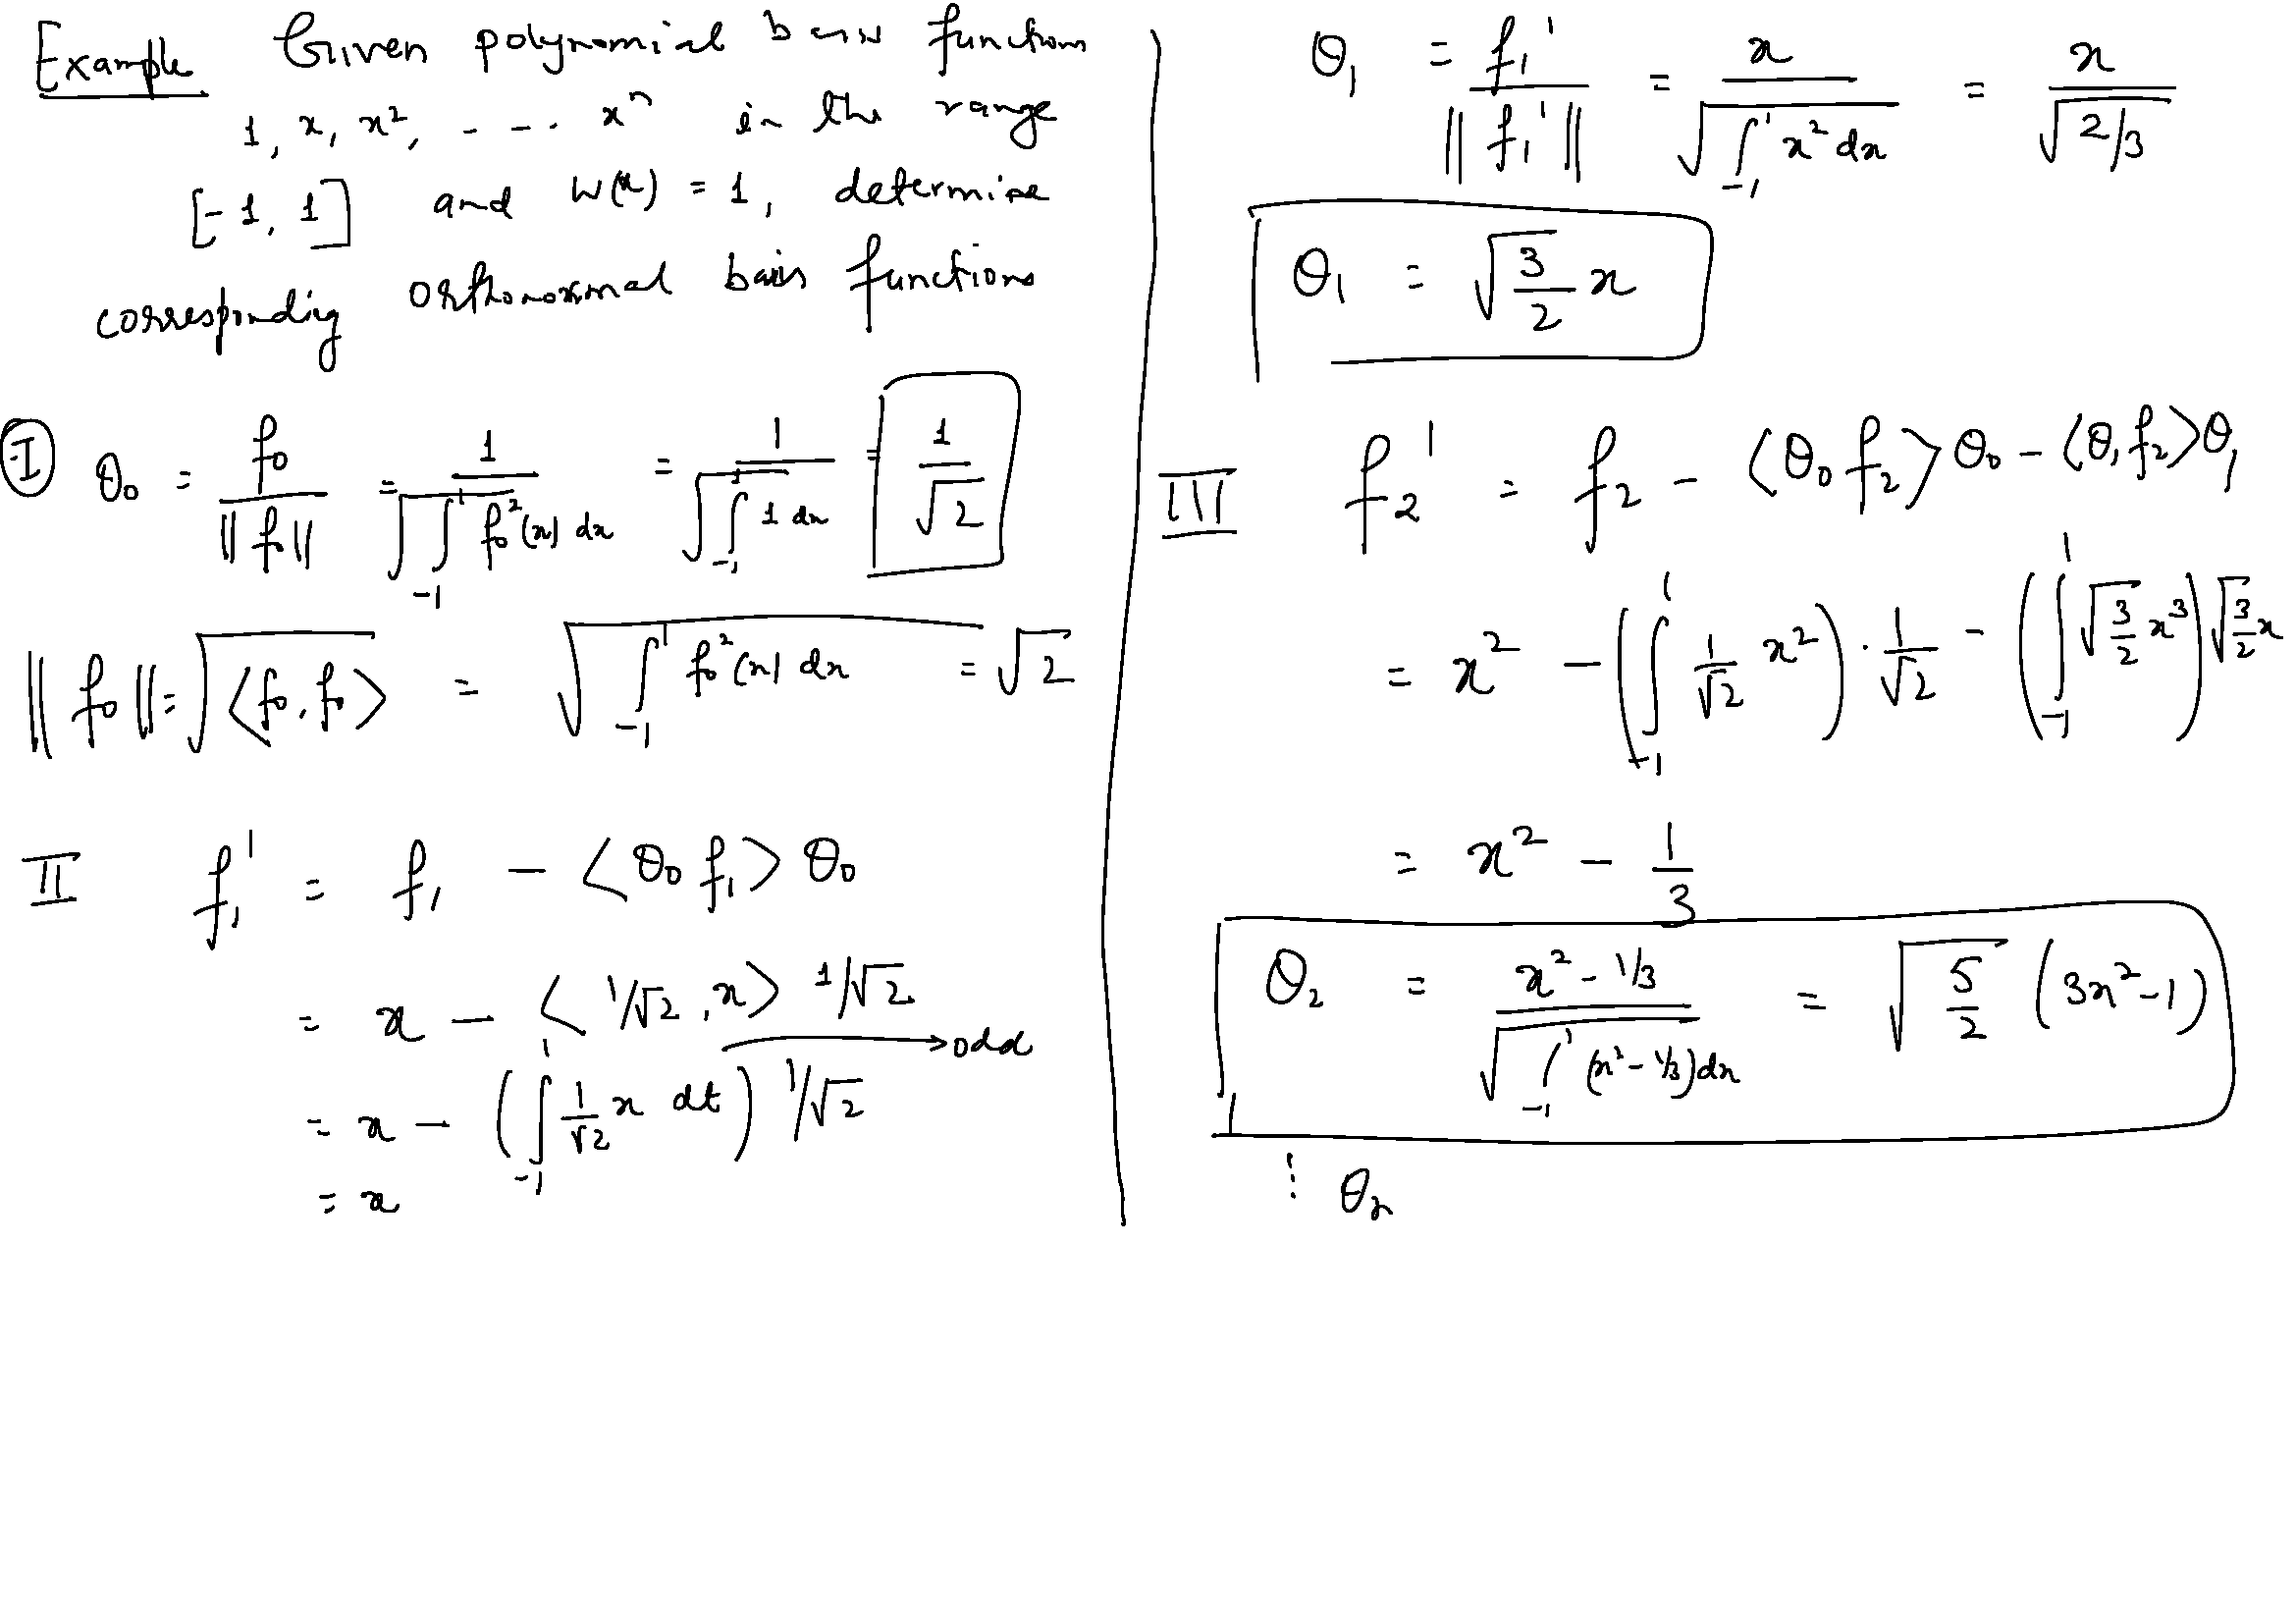 Example Given polynomial basis functions
1, x, x², - - - . xⁿ in the range
[-1, 1] and w(x) = 1, determine
corresponding orthonormal basis functions
Ⓘ θ₀ = f₀ / ||f₀|| = 1 / √(∫₋₁¹ f₀²(x) dx) = 1 / √(∫₋₁¹ 1 dx) = 1/√2
||f₀|| = √⟨f₀, f₀⟩ = √(∫₋₁¹ f₀²(x) dx) = √2
II f₁' = f₁ - <θ₀ f₁> θ₀
= x - < 1/√2, x> 1/√2
→ odd
= x - (∫₋₁¹ 1/√2 x dt) 1/√2
= x
θ₁ = f₁' / ||f₁'|| = x / √(∫₋₁¹ x² dx) = x / √(2/3)
θ₁ = √(3/2) x
III f₂' = f₂ - <θ₀ f₂> θ₀ - <θ₁ f₂> θ₁
= x² - (∫₋₁¹ 1/√2 x²) · 1/√2 - (∫₋₁¹ √(3/2) x³) √(3/2) x
= x² - 1/3
θ₂ = (x² - 1/3) / √(∫₋₁¹ (x² - 1/3) dx) = √(5/2) (3x² - 1)
⋮ θₙ